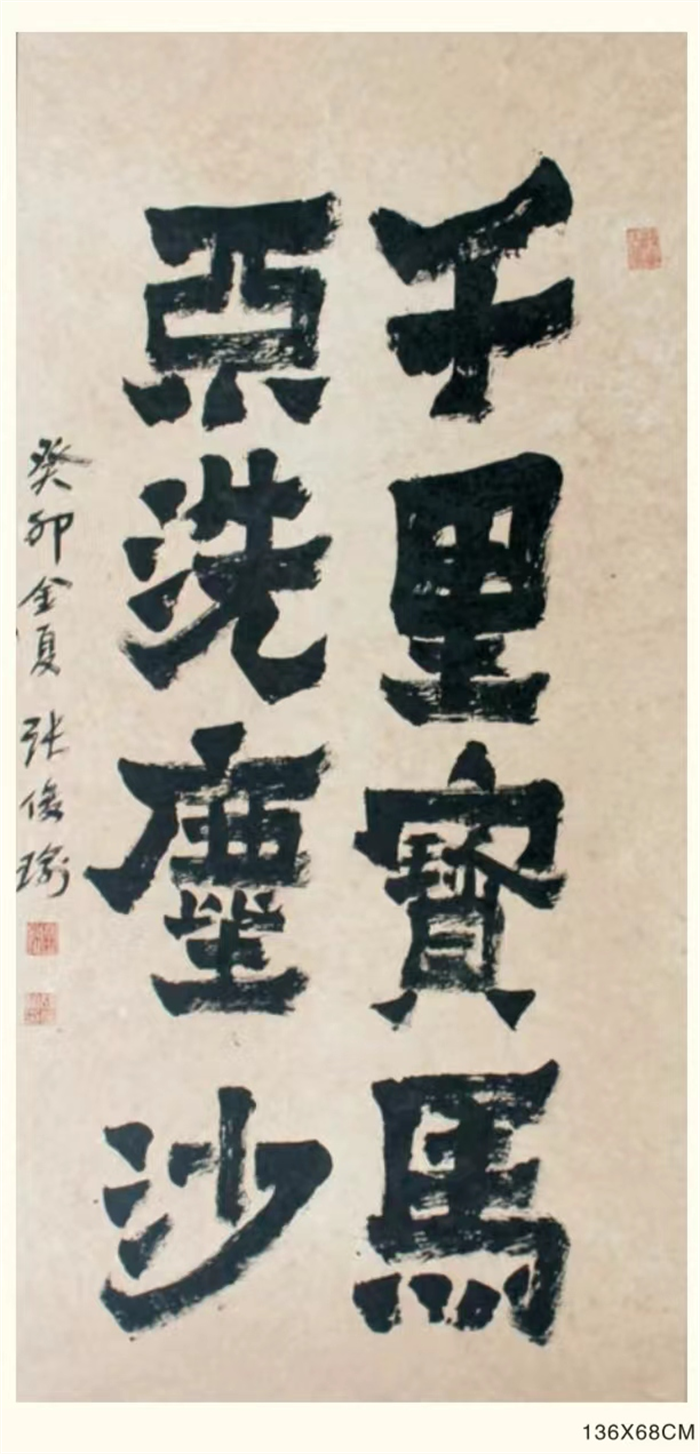 千里寶馬
洗塵沙
癸卯金夏 张俊瑜
136X68CM